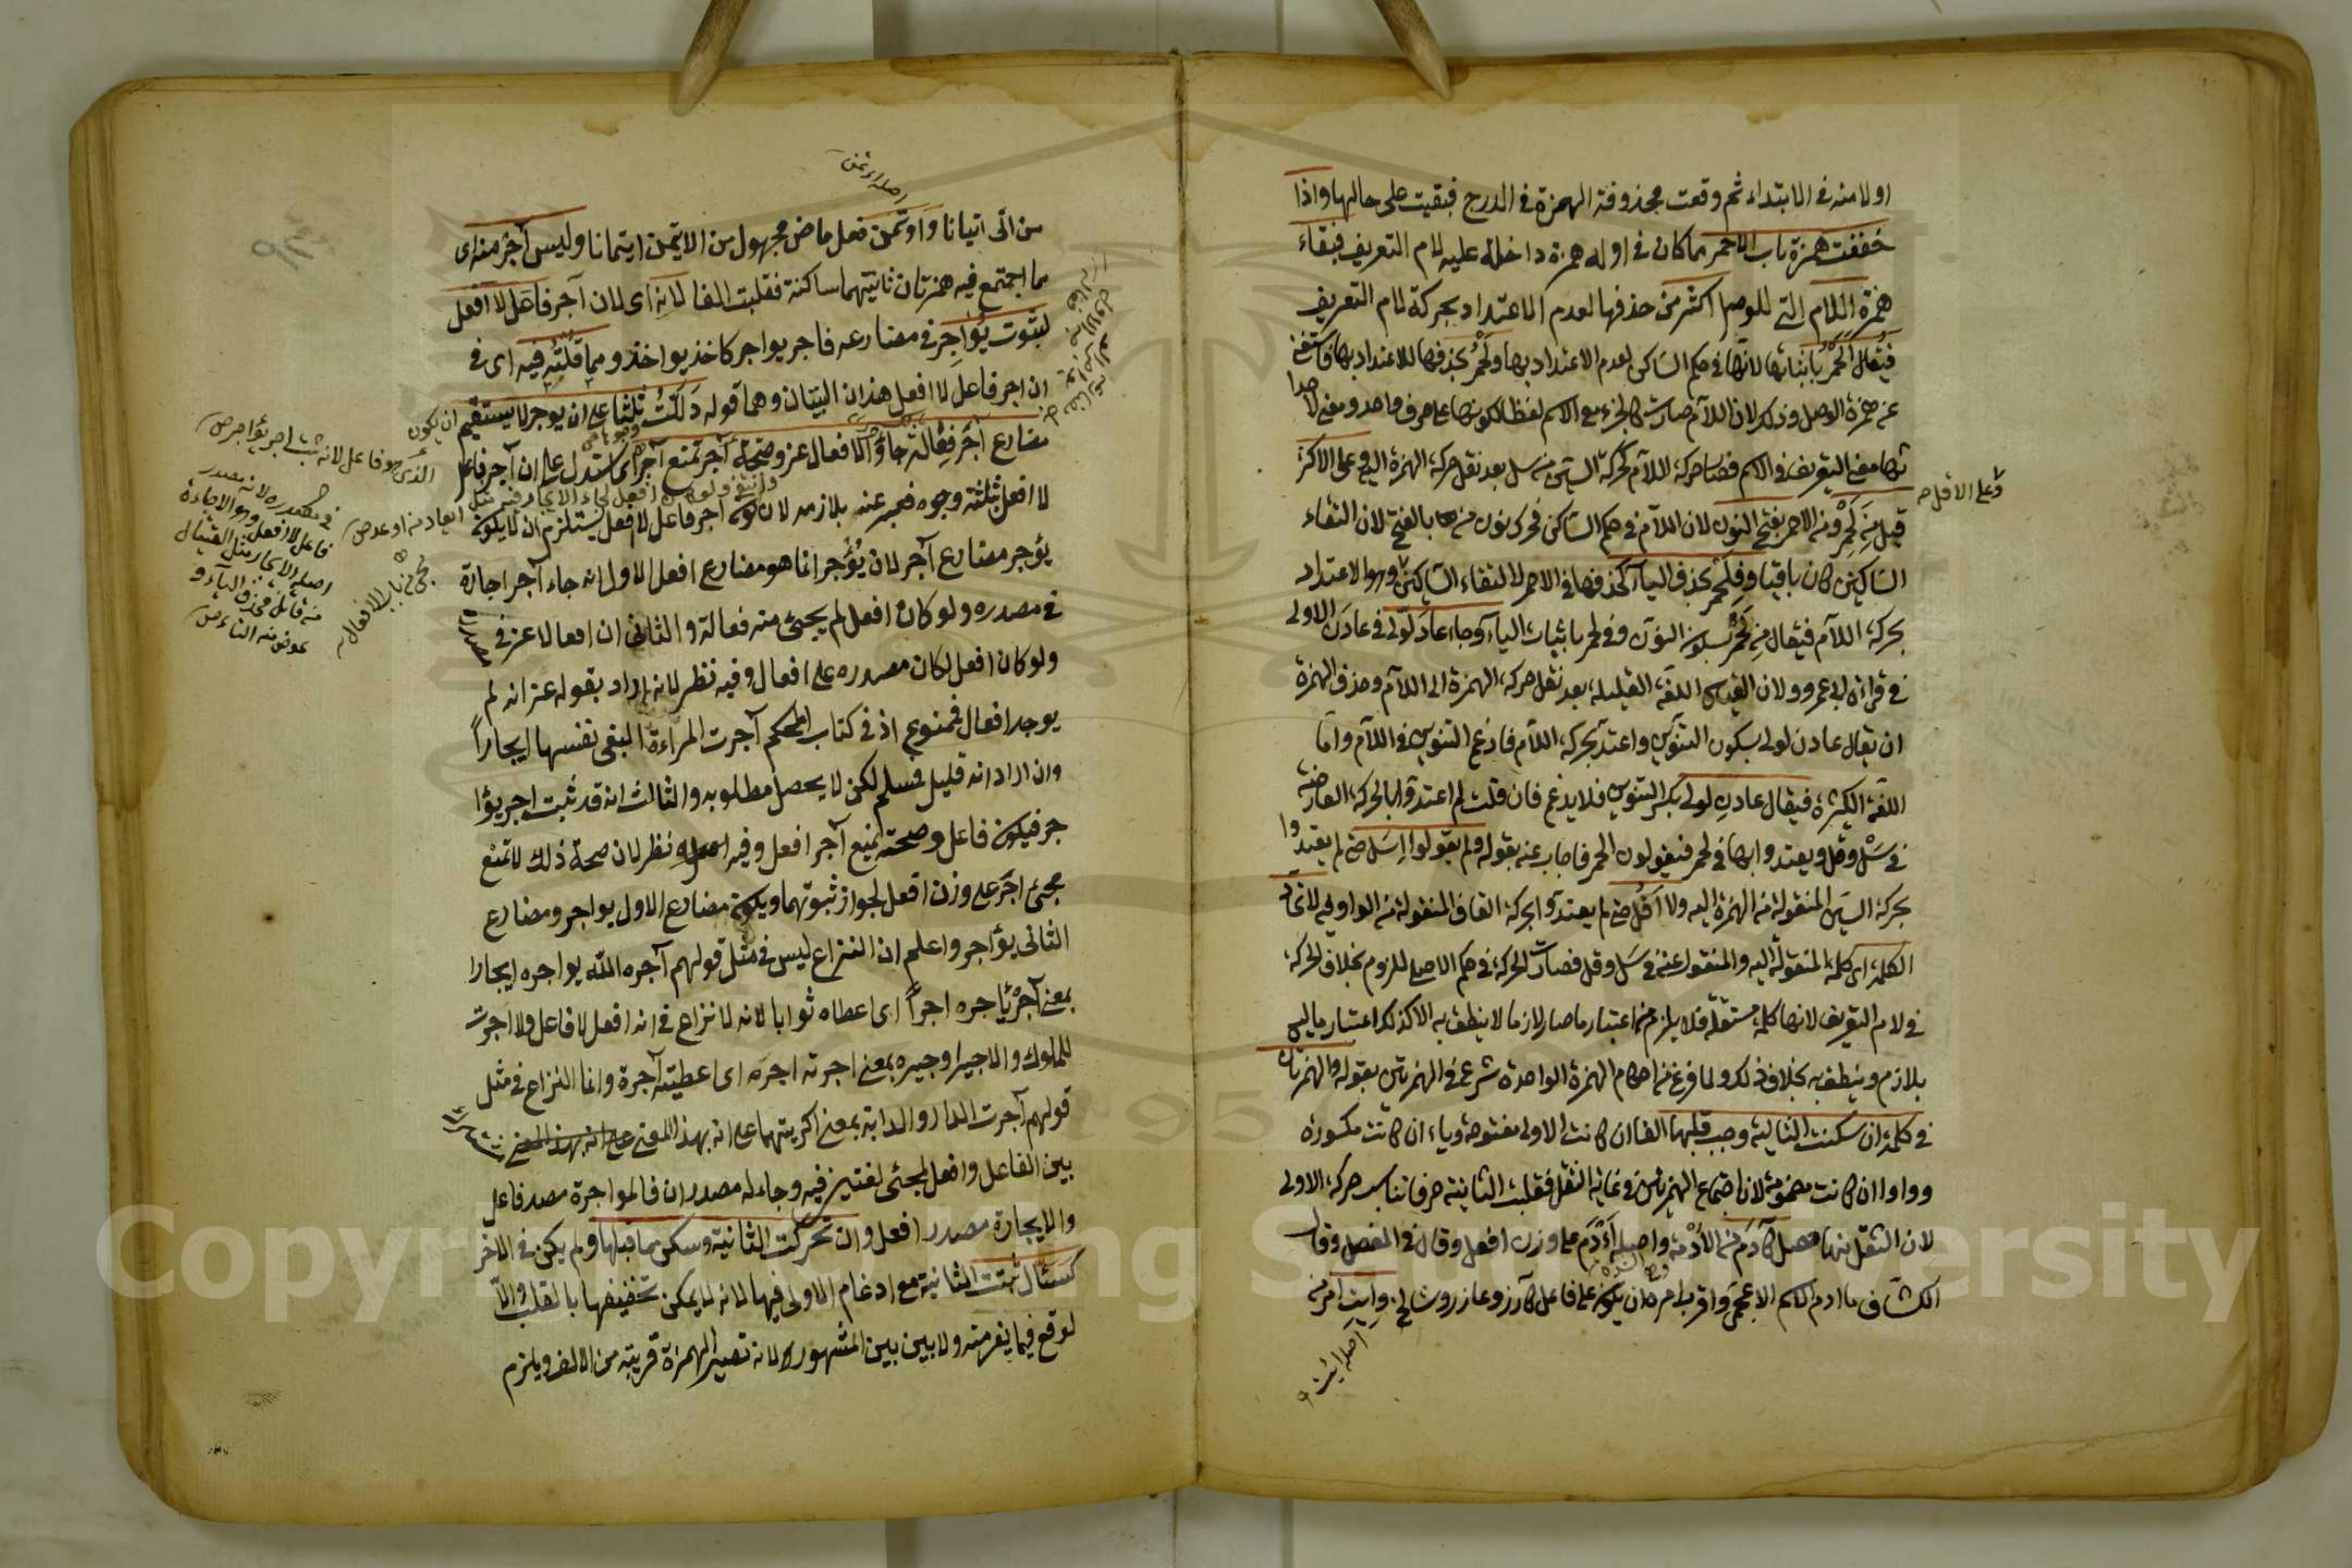 اولا منه في الابتداء ثم وقعت محذوفة الهمزة في الدرج فبقيت على حالها واذا
خففت همزة باب الاحمر مما كان في اوله همزة داخلة عليه لام التعريف فبقاء
همزة اللام التي للوصل اكثر من حذفها لعدم الاعتداد بحركة لام التعريف
فيقال الحمر باثباتها لانها في حكم الساكن لعدم الاعتداد بها ولحمر بحذفها للاعتداد بها فاستغنى
عن همزة الوصل وذلك لان اللام صارت كالجزء مع الاسم لفظا لكونها على حرف واحد ومعنى لاحدا
ثها معنى التعريف في الاسم فصار حركة اللام كحركة السين في سل بعد نقل حركة الهمزة اليه وعلى الاكثر
وعلى الاقل
قيل من لحمر ومن الاحمر بفتح النون لان اللام في حكم الساكن فحرك نون من بالفتح لان التقاء
الساكنين كان باقيا وفلحمر بحذف الياء كحذفها في الاحمر لالتقاء الساكنين والاعتداد
بحركة اللام فيقال من لحمر بسكون النون وفي لحمر باثبات الياء وجاء عاد لولى في عادن الاولى
في قراءة ابي عمرو ولان القياس اللغة القليلة بعد نقل حركة الهمزة الى اللام وحذف الهمزة
ان يقال عادن لولى بسكون التنوين واعتد بحركة اللام فادغم التنوين في اللام واما
اللغة الكثيرة فيقال عادن لولى بكسر التنوين فلا يدغم فان قلت لم اعتدوا بالحركة العارضة
في سل وقل ويعتدوا بها في لحمر فيقولون الحمر فاجاب عنه بقوله ولم يقولوا اسل حتى لم يعتدوا
بحركة السين المنقولة من الهمزة اليه ولا اقل حتى لم يعتدوا بحركة القاف المنقولة من الواو اليه لاتحاد
الكلمة اى كلمة المنقول اليه والمنقول عنه في سل وقل فصارت الحركة في حكم الاصلى للزوم بخلاف الحركة
في لام التعريف لانها كلمة مستقلة فلا يلزم من اعتبار ما صار لازما لا ينطق به الا كذلك اعتبار ما ليس
بلازم وينطق به بخلاف ذلك ولما فرغ من احكام الهمزة الواحدة شرع في الهمزتين بقوله والهمزتان
في كلمة ان سكنت الثانية وجب قلبها الفا ان كانت الاولى مفتوحة وياء ان كانت مكسورة
وواوا ان كانت مضمومة لان اجتماع الهمزتين في غاية الثقل فقلبت الثانية حرفا تناسب حركة الاولى
لان الثقل منها حصل كآدم من الادمة واصله أأدم على وزن افعل وقال في المفصل وقال
الكشاف ما ادم الا اسم اعجمى واقرب امره ان يكون على فاعل كآزر وعازر وشالخ وايت امر من
اصله ائيت
اصله اؤتمن
من اتى اتيانا واوتمن فعل ماض مجهول من الايتمن ايتمانا وليس آجر منه اى
مما اجتمع فيه همزتان ثانيتهما ساكنة فقلبت الفا لانه اى لان آجر فاعل لا افعل
لثبوت يؤاجر في مضارعه فاجر يواجر كاخذ يواخذ ومما قلته فيه اى في
ان اجر فاعل لا افعل هذان البيتان وهما قوله دللت ثلثا على ان يوجر لا يستقيم ان يكون
مضارع آجر فعالة جاء والافعال عز وصحة آجر تمنع آجر اى استدل على ان آجر فاعل
لا افعل بثلثة وجوه فعبر عنه بلازمه لان كونه آجر فاعل لا افعل يستلزم ان لا يكون
يؤجر مضارع آجر لان يؤجر انما هو مضارع افعل الاول انه جاء آجر اجارة
في مصدره ولو كان افعل لم يجئ منه فعالة والثاني ان افعالا عز في
ولو كان افعل لكان مصدره على افعال وفيه نظر لانه ان اراد بقوله عز انه لم
يوجد افعال فممنوع اذ في كتاب المحكم آجرت المراءة البغى نفسها ايجارا
وان اراد انه قليل فمسلم لكن لا يحصل مطلوبه والثالث انه قد ثبت اجر يؤا
جر فيكون فاعل وصحته يمنع آجر افعل وفيه نظر لان صحة ذلك لا تمنع
مجئ اجر على وزن افعل لجواز ثبوتهما ويكون مضارع الاول يواجر ومضارع
الثانى يؤاجر واعلم ان النزاع ليس في مثل قولهم آجره الله يواجره ايجارا
بمعنى آجر يأجره اجرا اى اعطاه ثوابا لانه لا نزاع في انه افعل لا فاعل ولا اجرت
للملوك والاجير اوجيره بمعنى اجرته اجره اى اعطيته آجرة وانما النزاع في مثل
قولهم آجرت الدار والدابة بمعنى اكريتهما على انه بهذا المعنى على انه بهذا المعنى
بين الفاعل وافعل لمجئ لغتين فيه وجاء له مصدران فالمواجرة مصدر فاعل
والايجارة مصدر افعل وان تحركت الثانية وسكن ما قبلها ولم يكن في الاخر
كسئال ثبتت الثانية مع ادغام الاولى فيها لانه لا يمكن تخفيفها بالقلب والا
لوقع فيما يفر منه ولا بين بين المشهور لانه تصير الهمزة قريبة من الالف ويلزم